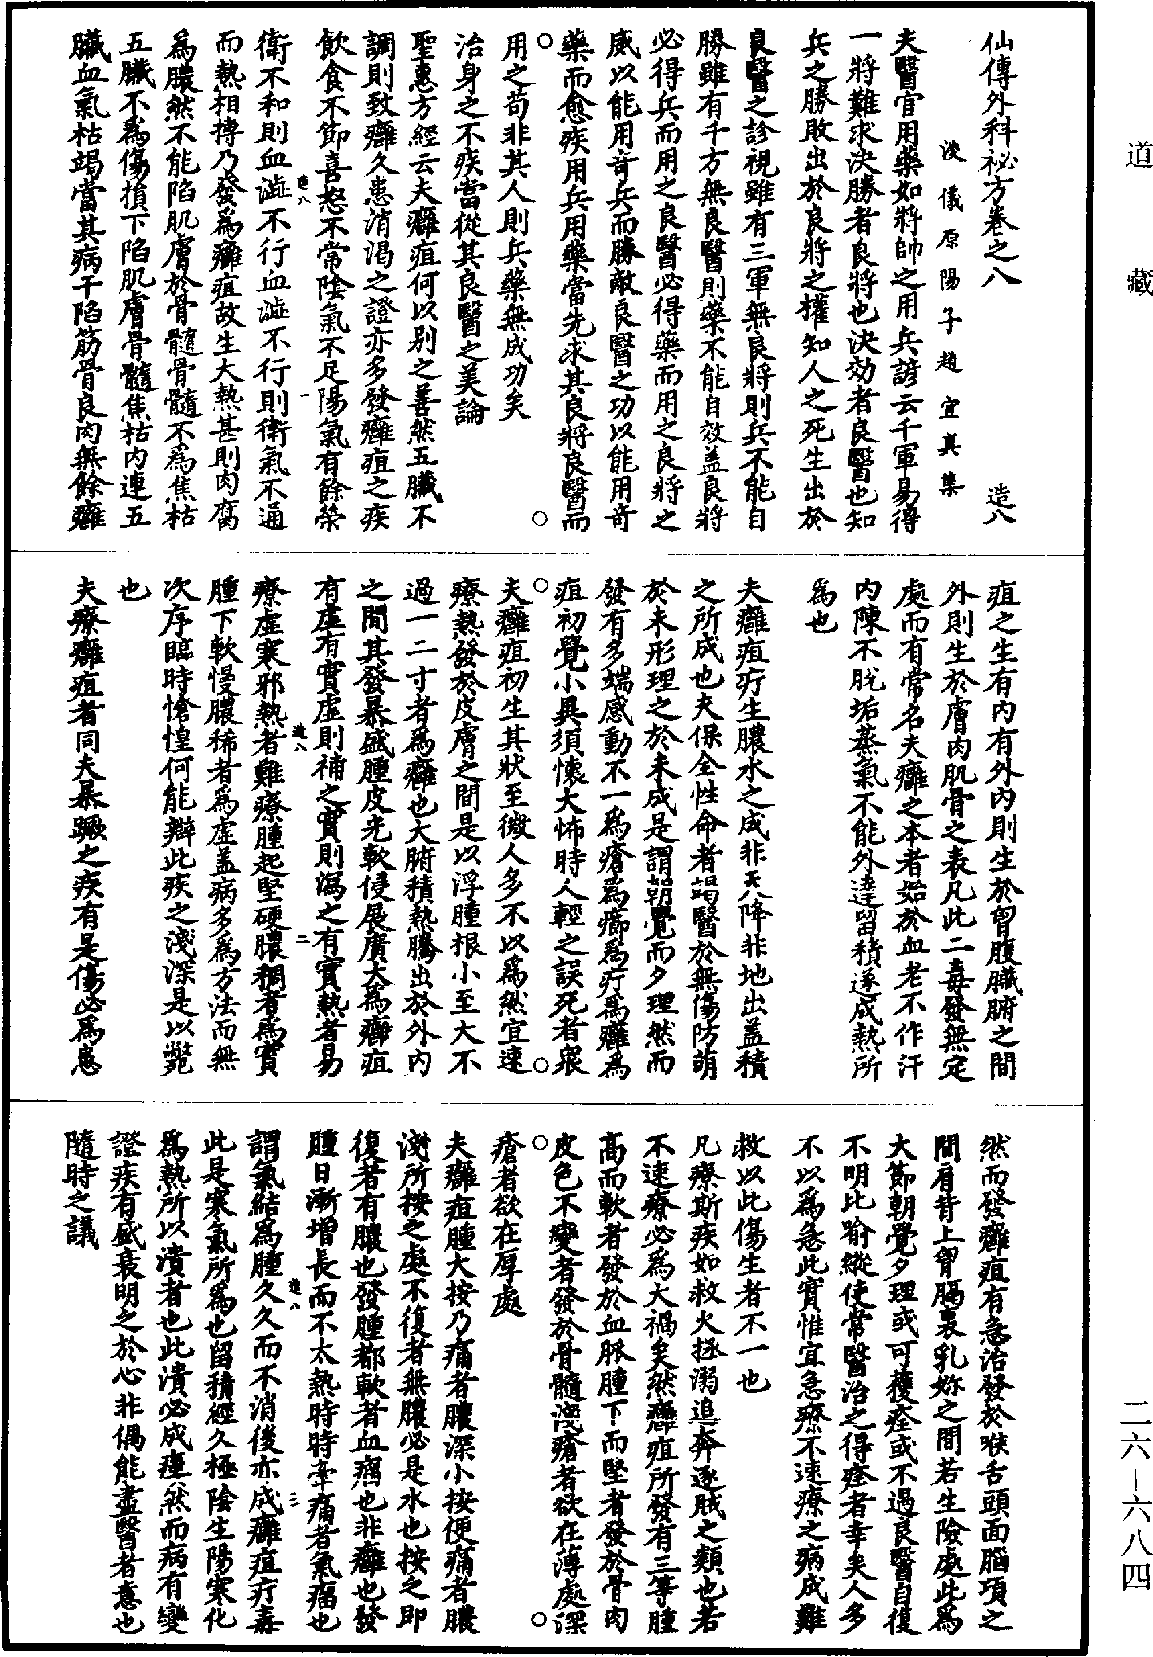 道藏
仙傳外科祕方卷之八 造八
浚儀原陽子趙宜真集
夫醫官用藥如將帥之用兵諺云千軍易得
一將難求決勝者良將也決效者良醫也知
兵之勝敗出於良將之權知人之死生出於
良醫之診視雖有三軍無良將則兵不能自
勝雖有千方無良醫則藥不能自效蓋良將
必得兵而用之良醫必得藥而用之良將之
威以能用奇兵而勝敵良醫之功以能用奇
藥而愈疾用兵用藥當先求其良將良醫而
用之苟非其人則兵藥無成功矣
○ ○
治身之不疾當從其良醫之美論
聖惠方經云夫癰疽何以別之善然五臟不
調則致癰久患消渴之證亦多發癰疽之疾
飲食不節喜怒不常陰氣不足陽氣有餘榮
造八 一
衛不和則血澁不行血澁不行則衛氣不通
而熱相搏乃發為癰疽故生大熱甚則肉腐
為膿然不能陷肌膚於骨髓骨髓不為焦枯
五臟不為傷損下陷肌膚骨髓焦枯內連五
臟血氣枯竭當其病干陷筋骨良肉無餘癰
疽之生有內有外內則生於胷腹臟腑之間
外則生於膚肉肌骨之表凡此二毒發無定
處而有常名夫癰之本者始於血老不作汗
內陳不脫垢蒸氣不能外達留積遂成熱所
為也
夫癰疽疔生膿水之成非天降非地出蓋積
之所成也夫保全性命者竭醫於無傷防萌
於未形理之於未成是謂朝覺而夕理然而
發有多端感動不一為瘡為癤為疔為癰為
疽初覺小異須懷大怖時人輕之誤死者眾
○ ○
夫癰疽初生其狀至微人多不以為然宜速
療熱發於皮膚之間是以浮腫根小至大不
過一二寸者為癰也大腑積熱騰出於外內
之間其發暴盛腫皮光軟侵展廣大為癰疽
有虛有實虛則補之實則瀉之有實熱者易
造八 二
療虛寒邪熱者難療腫起堅硬膿稠者為實
腫下軟慢膿稀者為虛蓋病多為方法而無
次序臨時愴惶何能辯此疾之淺深是以斃
也
夫療癰疽者同夫暴蹶之疾有是傷必為患
然而發癰疽有急治發於喉舌頭面腦項之
間肩背上胷膈裏乳妳之間若生險處此為
大節朝覺夕理或可獲痊或不過良醫自復
不明比喻縱使常醫治之得痊者幸矣人多
不以為急此實惟宜急療不速療之病成難
救以此傷生者不一也
凡療斯疾如救火拯溺追奔逐賊之類也若
不速療必為大禍矣然癰疽所發有三等腫
高而軟者發於血脈腫下而堅者發於骨肉
皮色不變者發於骨髓淺瘡者欲在薄處深
○ ○
瘡者欲在厚處
夫癰疽腫大按乃痛者膿深小按便痛者膿
淺所按之處不復者無膿必是水也按之即
復若有膿也發腫都軟者血癰也非癰也發
腫日漸增長而不太熱時時牽痛者氣瘤也
造八 三
謂氣結為腫久久而不消後亦成癰疽疔毒
此是寒氣所為也留積經久極陰生陽寒化
為熱所以潰者也此潰必成瘻然而病有變
證疾有盛衰明之於心非偶能盡醫者意也
隨時之議
二六—六八四